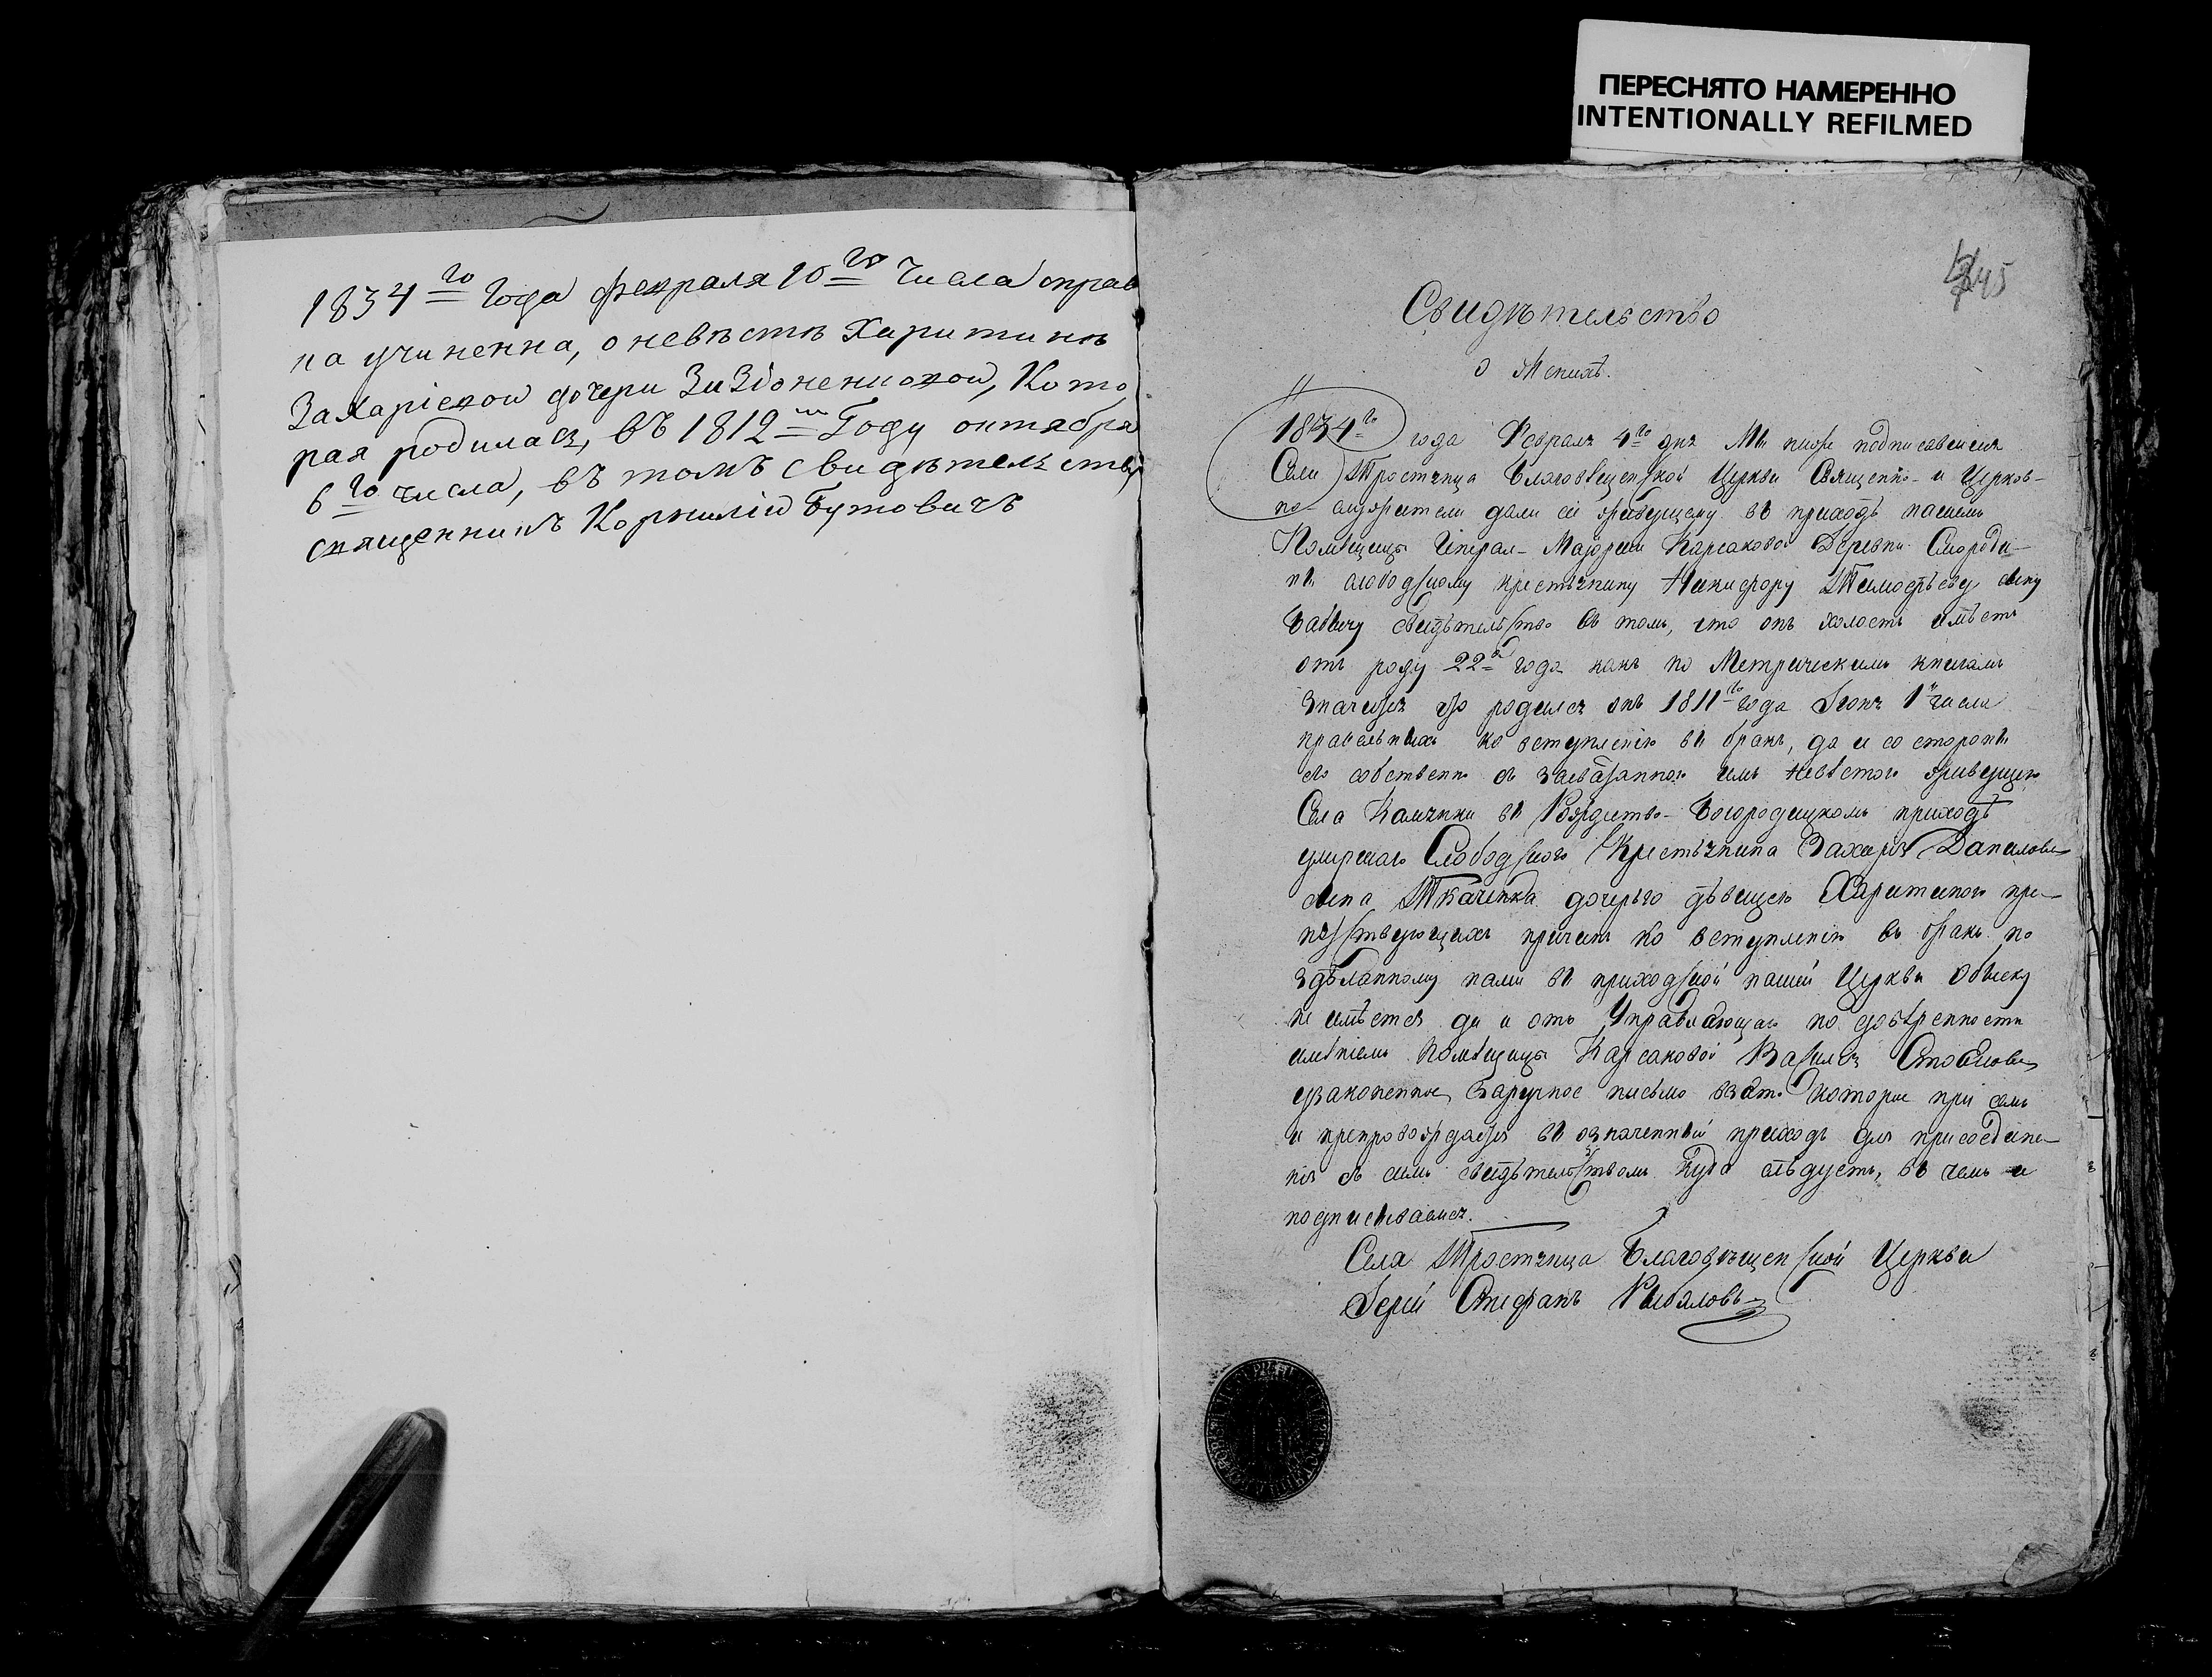 ПЕРЕСНЯТО НАМЕРЕННО
INTENTIONALLY REFILMED
1834го Года февраля 10го Числа справ
ка учиненна, о невѣстѣ Харитинѣ
Захаріевой дочери Кото
рая родилась, въ 1812м Году октября
6го числа, въ томъ свидѣтельству
священникъ Корнилій Бутовичъ
45
Свидѣтельство
о Женихѣ.
1834го года Февраля 4го дня Мы ниже подписавшiися
Села Тростянца Благовѣщенской Церкви Священно- и Церков-
но служители дали сiе жительствующему въ приходѣ нашемъ
Помѣщицы Генерал-Маiорши Карсаковой Деревни Смороди-
ны слободскому крестьянину Никифору Тимофѣеву сыну
Бабичу свидѣтельство въ томъ, что онъ холостъ имѣетъ
отъ роду 22а года какъ по Метрическимъ книгамъ
Значится что родился онъ 1811го года Iюня 1 числа
правильныхъ ко вступленiю въ бракъ, да и со стороны
его собственно съ засватанною имъ невѣстою живущею
Села Камянки въ Рождество-Богородицкомъ приходѣ
умершаго Слободского Крестьянина Захарiя Данилова
сына Ткаченка дочерью дѣвицею Харитиною пре-
пятствующихъ причинъ ко вступленiю въ бракъ по
здѣланному нами въ приходской нашей Церкви Обыску
не имѣется да и отъ Управляющаго по довѣренности
имѣнiемъ Помѣщицы Карсаковой Василiя
узаконенное Заручное письмо взято которое при семъ
и препровождается въ означенный приходъ для присоедине-
нiя съ симъ свидѣтельствомъ куда слѣдуетъ, въ чемъ и
подписываемся.
Села Тростянца Благовѣщенской Церкви
Iерей Стефанъ